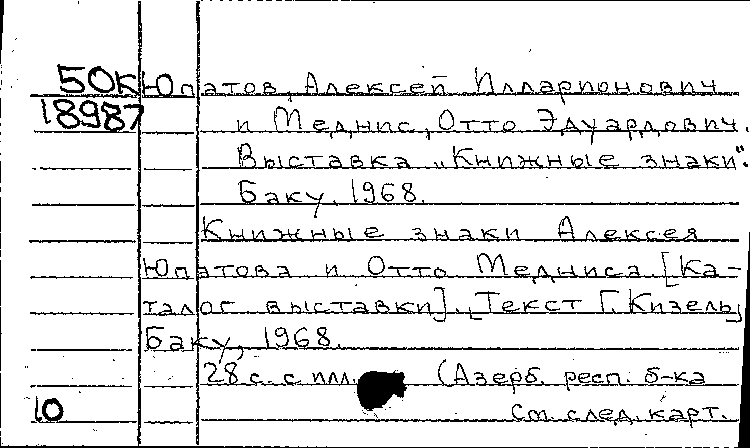 50К Юпатов, Алексей Илларионович
18987 и Меднис, Отто Эдуардович.
Выставка „Книжные знаки".
Баку. 1968.
Книжные знаки Алексея
Юпатова и Отто Медниса. [Ка-
талог выставки]. [Текст Г. Кизель]
Баку, 1968.
28 с. с илл. (Азерб. респ. б-ка
10 См. след. карт.